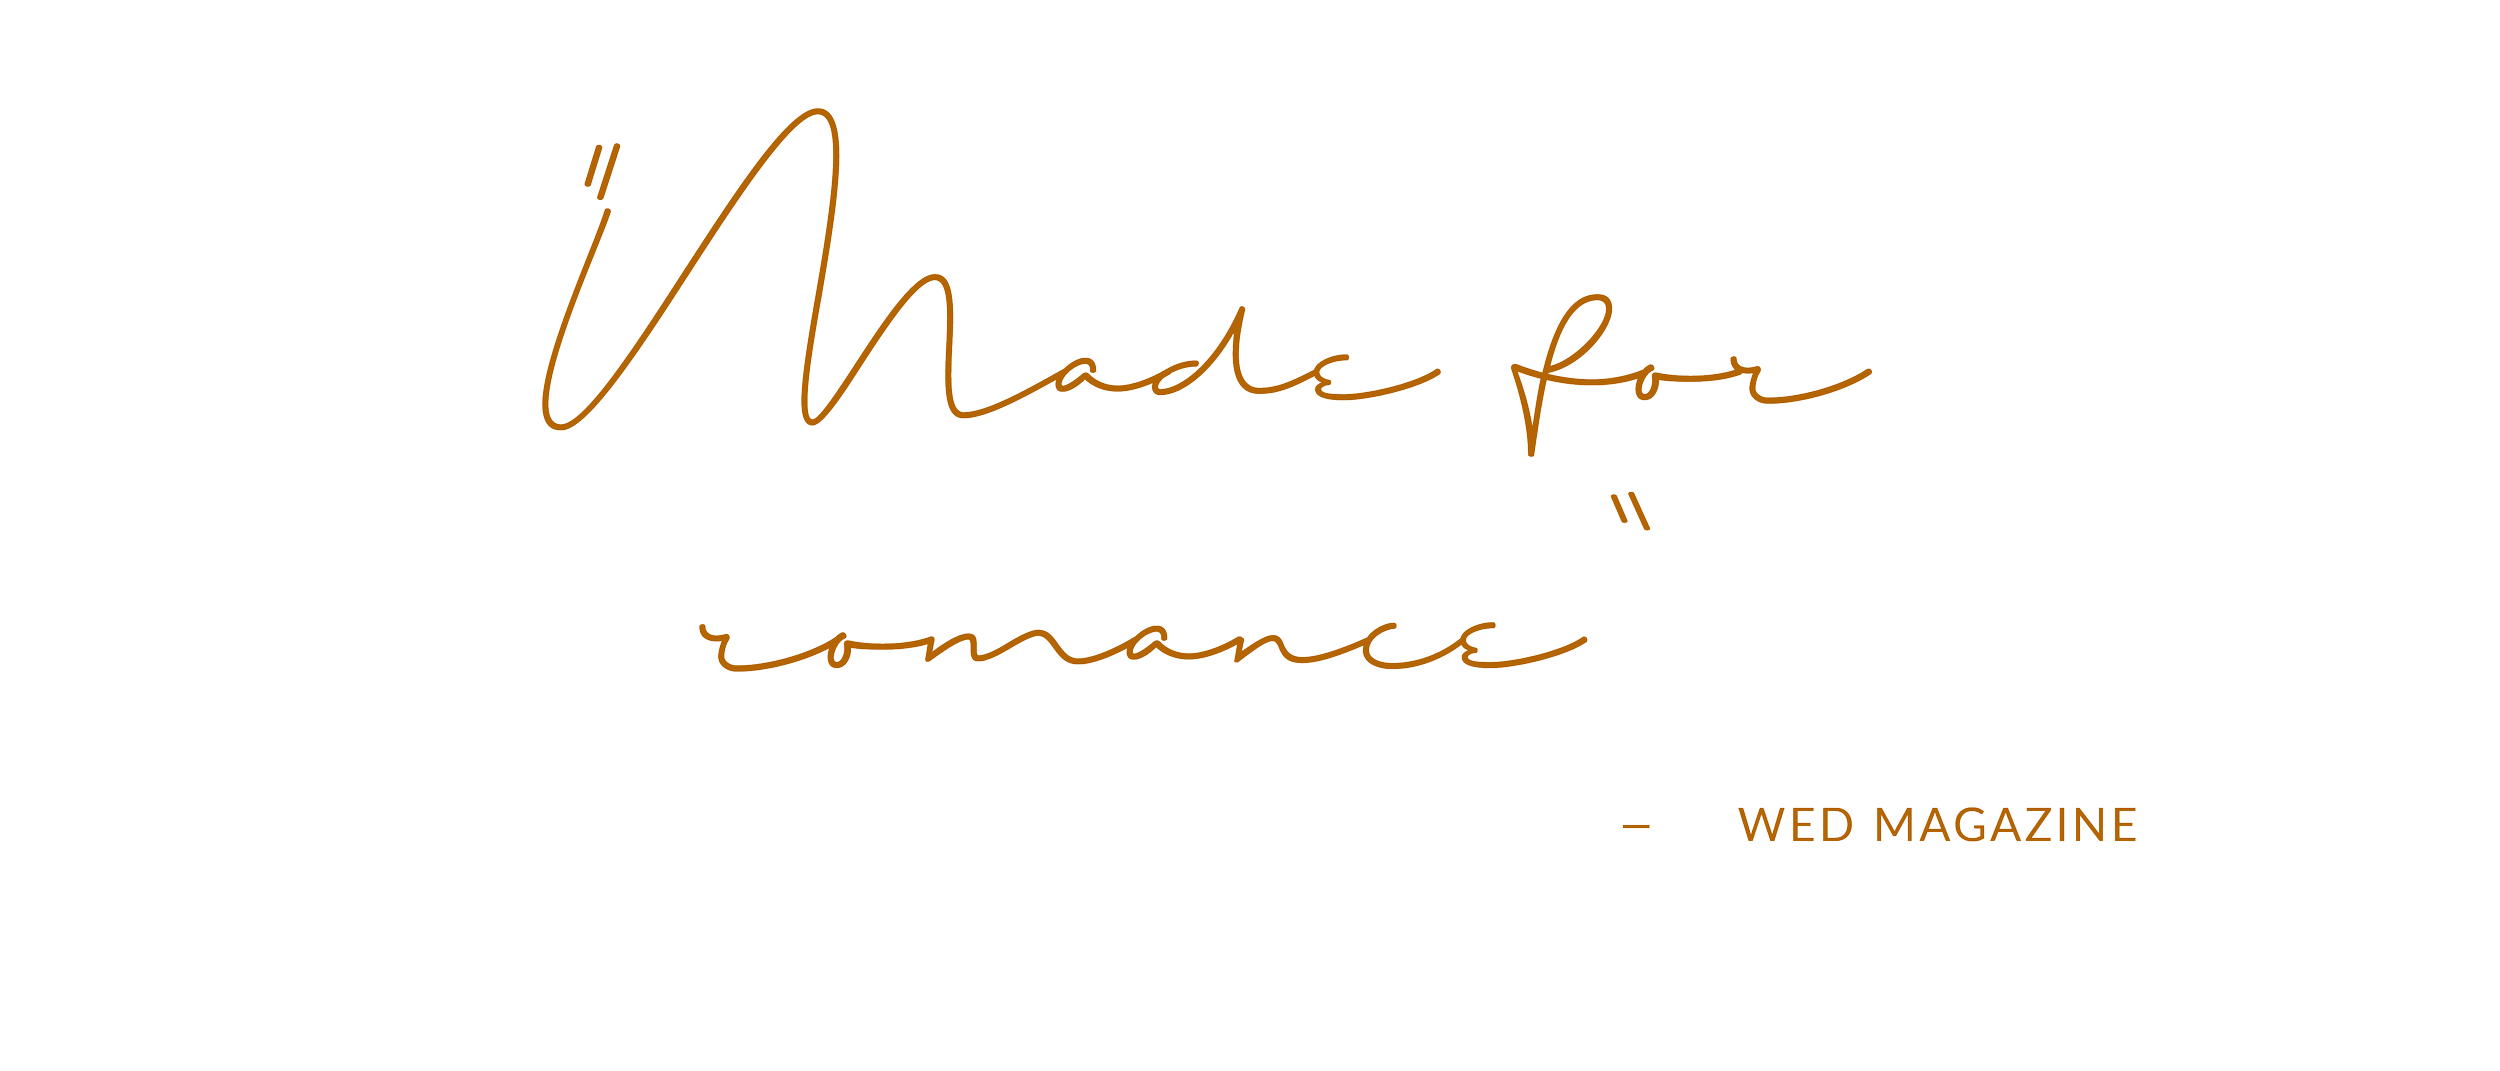 "Made for
romance"
— WED MAGAZINE